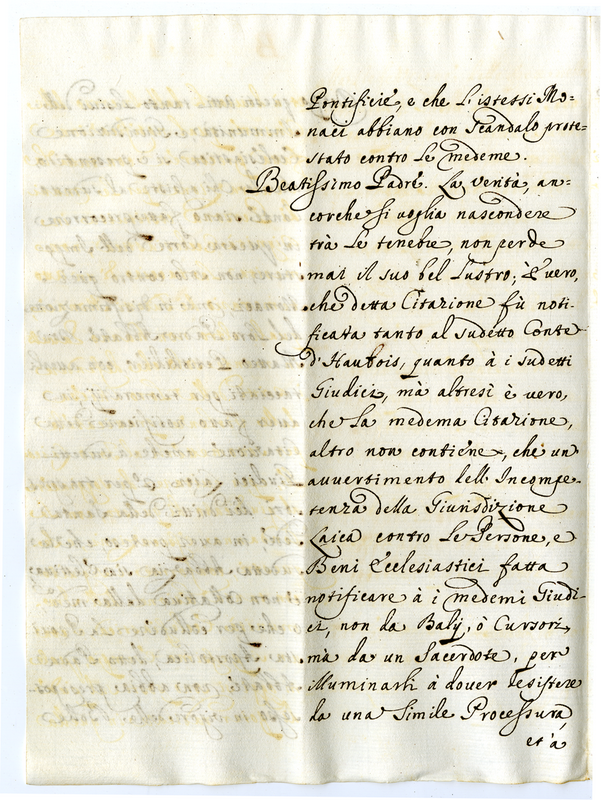 Pontificie, e che l'istessi Mo=
naci abbiano con Scandalo prote=
stato contro le medeme.
Beatissimo Padre. La verità, an=
corche si voglia nascondere
trà le tenebre, non perde
mai il suo bel lustro; È vero,
che detta Citazione fù noti=
ficata tanto al sudetto Conte
d'Haubois, quanto à i sudetti
Giudici, mà altresì è vero,
che la medema Citazione,
altro non contiene, che un
avvertimento dell'Incompe=
tenza della Giurisdizione
Laica contro le Persone, e
Beni Ecclesiastici fatta
notificare à i medemi Giudi=
ci, non da Balij, ò Cursori,
mà da un Sacerdote, per
illuminarli à dover desistere
da una simile Processura,
et à